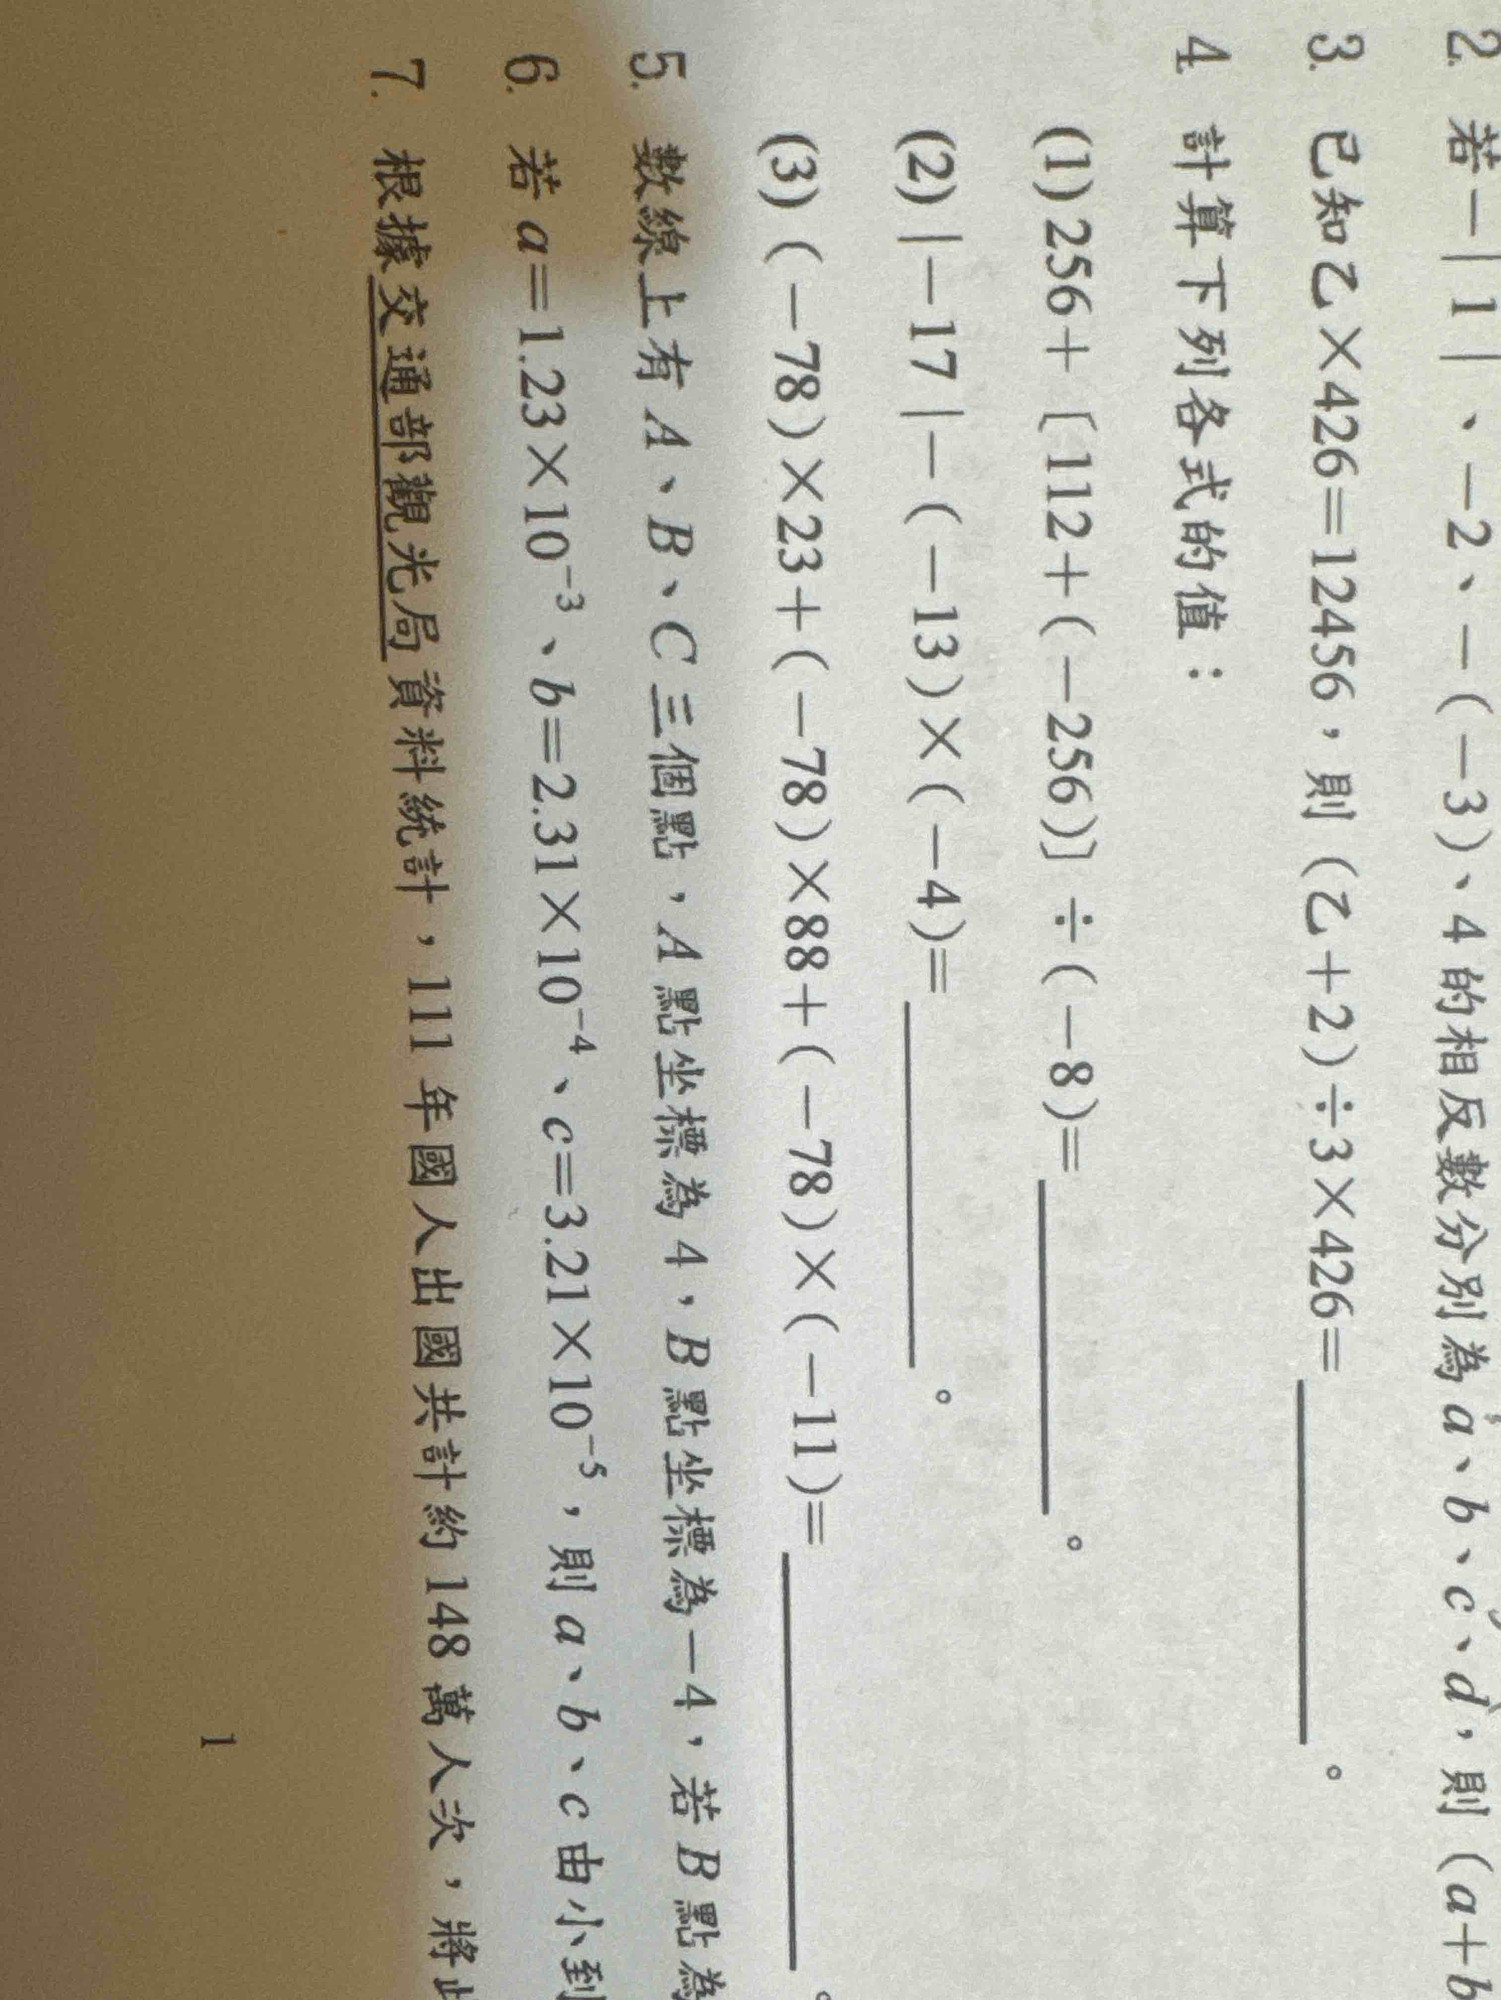 2. 若－|1|、－2、－(－3)、4的相反數分別為a、b、c、d，則(a＋b
3. 已知乙×426＝12456，則(乙＋2)÷3×426＝＿＿＿＿。
4. 計算下列各式的值：
(1) 256＋〔112＋(－256)〕÷(－8)＝＿＿＿＿。
(2) |－17|－(－13)×(－4)＝＿＿＿＿。
(3) (－78)×23＋(－78)×88＋(－78)×(－11)＝＿＿＿＿。
5. 數線上有A、B、C三個點，A點坐標為4，B點坐標為－4，若B點為
6. 若a＝1.23×10⁻³、b＝2.31×10⁻⁴、c＝3.21×10⁻⁵，則a、b、c由小到
7. 根據交通部觀光局資料統計，111年國人出國共計約148萬人次，將此
1